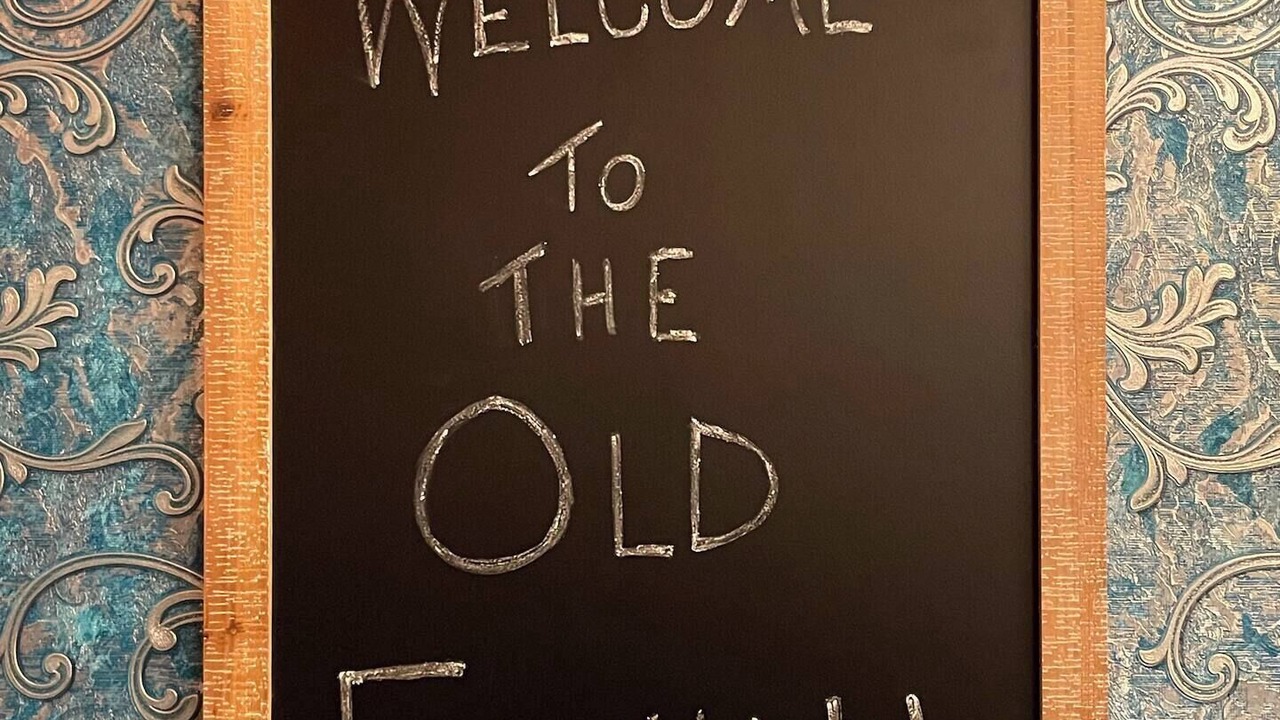 WELCOME
TO
THE
OLD